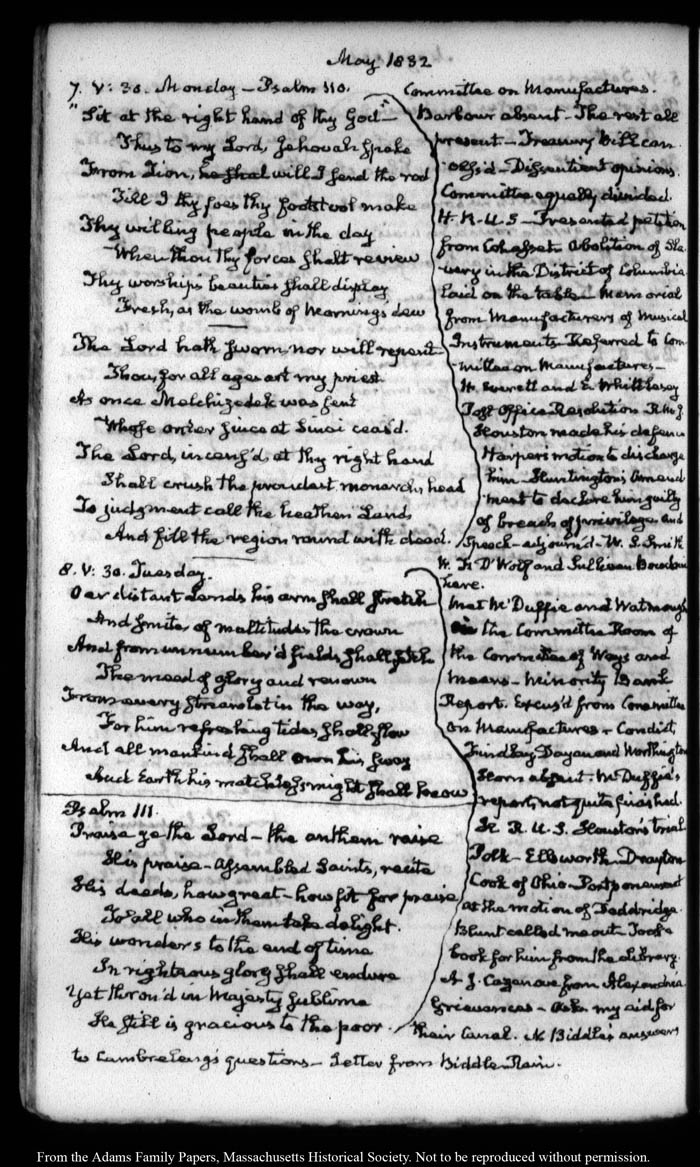 May 1832
7. V: 30. Monday – Psalm 110.
"Sit at the right hand of thy God" –
Thus to my Lord, Jehovah spake
From Zion, he shal will I send the rod
Till I thy foes thy footstool make
Thy willing people in the day
When thou thy forces shalt review
Thy worship's beauties shall display
Fresh, as the womb of morning's dew
The Lord hath sworn nor will repent
Thou, for all ages art my priest
As once Melchizedek was sent
Whose order since at Sinai ceas'd.
The Lord, incens'd, at thy right hand
Shall crush the proudest monarch's head
To judgment call the heathen Lands
And fill the region round with dead.
8. V: 30. Tuesday.
O'er distant Lands his arm shall stretch
And smite, of multitudes the crown
And from unnumber'd fields shall fetch
The meed of glory and renown
From every streamlet in the way,
For him refreshing tides shall flow
And all mankind shall own his sway
And Earth his matchless might shall know
Psalm 111.
Praise ye the Lord – the anthem raise
His praise – assembled Saints, recite
His deeds, how great – how fit for praise
To all who in them take delight.
His wonders to the end of time
In righteous glory shall endure
Yet thron'd in Majesty sublime
He still is gracious to the poor.
Committee on Manufactures.
Barbour absent – The rest all
present – Treasury bill can
Dissentient opinions.
Committee equally divided.
H. R. U. S – Presented petition
from Cohasset. Abolition of Sla-
very in the District of Columbia
laid on the table – Memorial
from Manufacturers of Musical
Instruments – Referred to Com-
mittee on Manufactures –
H. Everett and E. Whittlesey
Post Office Resolution
Houston made his defence
Harper's motion to discharge
him – Huntington's Amend-
ment to declare him guilty
of breach of privilege and
Speech – adjourn'd – W. S. Smith
W. F. D'Wolf and Sullivan
here.
Met McDuffie and Watmough
in the Committee Room of
the Committee of Ways and
means – Minority Bank
Report. Excus'd from Committee
on Manufactures – Condict,
Findlay, Dayan and Worthington
Horn absent – McDuffie's
report, not quite finished.
H. R. U. S. Houston's trial
Polk – Ellsworth – Drayton
Cook of Ohio – Postponement
at the motion of Doddridge.
Blunt called me out – Took a
book for him from the Library.
A. J. Cazenove from Alexandria
Grievances – Ask my aid for
their Canal. N. Biddle's answers
to Cambreleng's questions – Letter from Biddle – Rain.
From the Adams Family Papers, Massachusetts Historical Society. Not to be reproduced without permission.